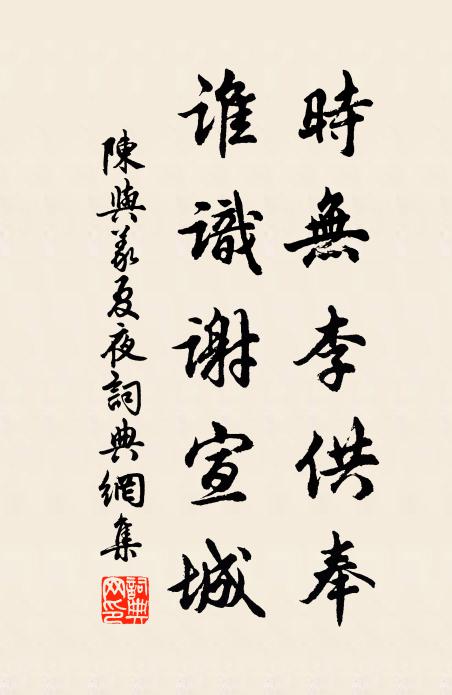 時無李供奉
誰識謝宣城
陳與義夏夜詞典網集
詞典网印